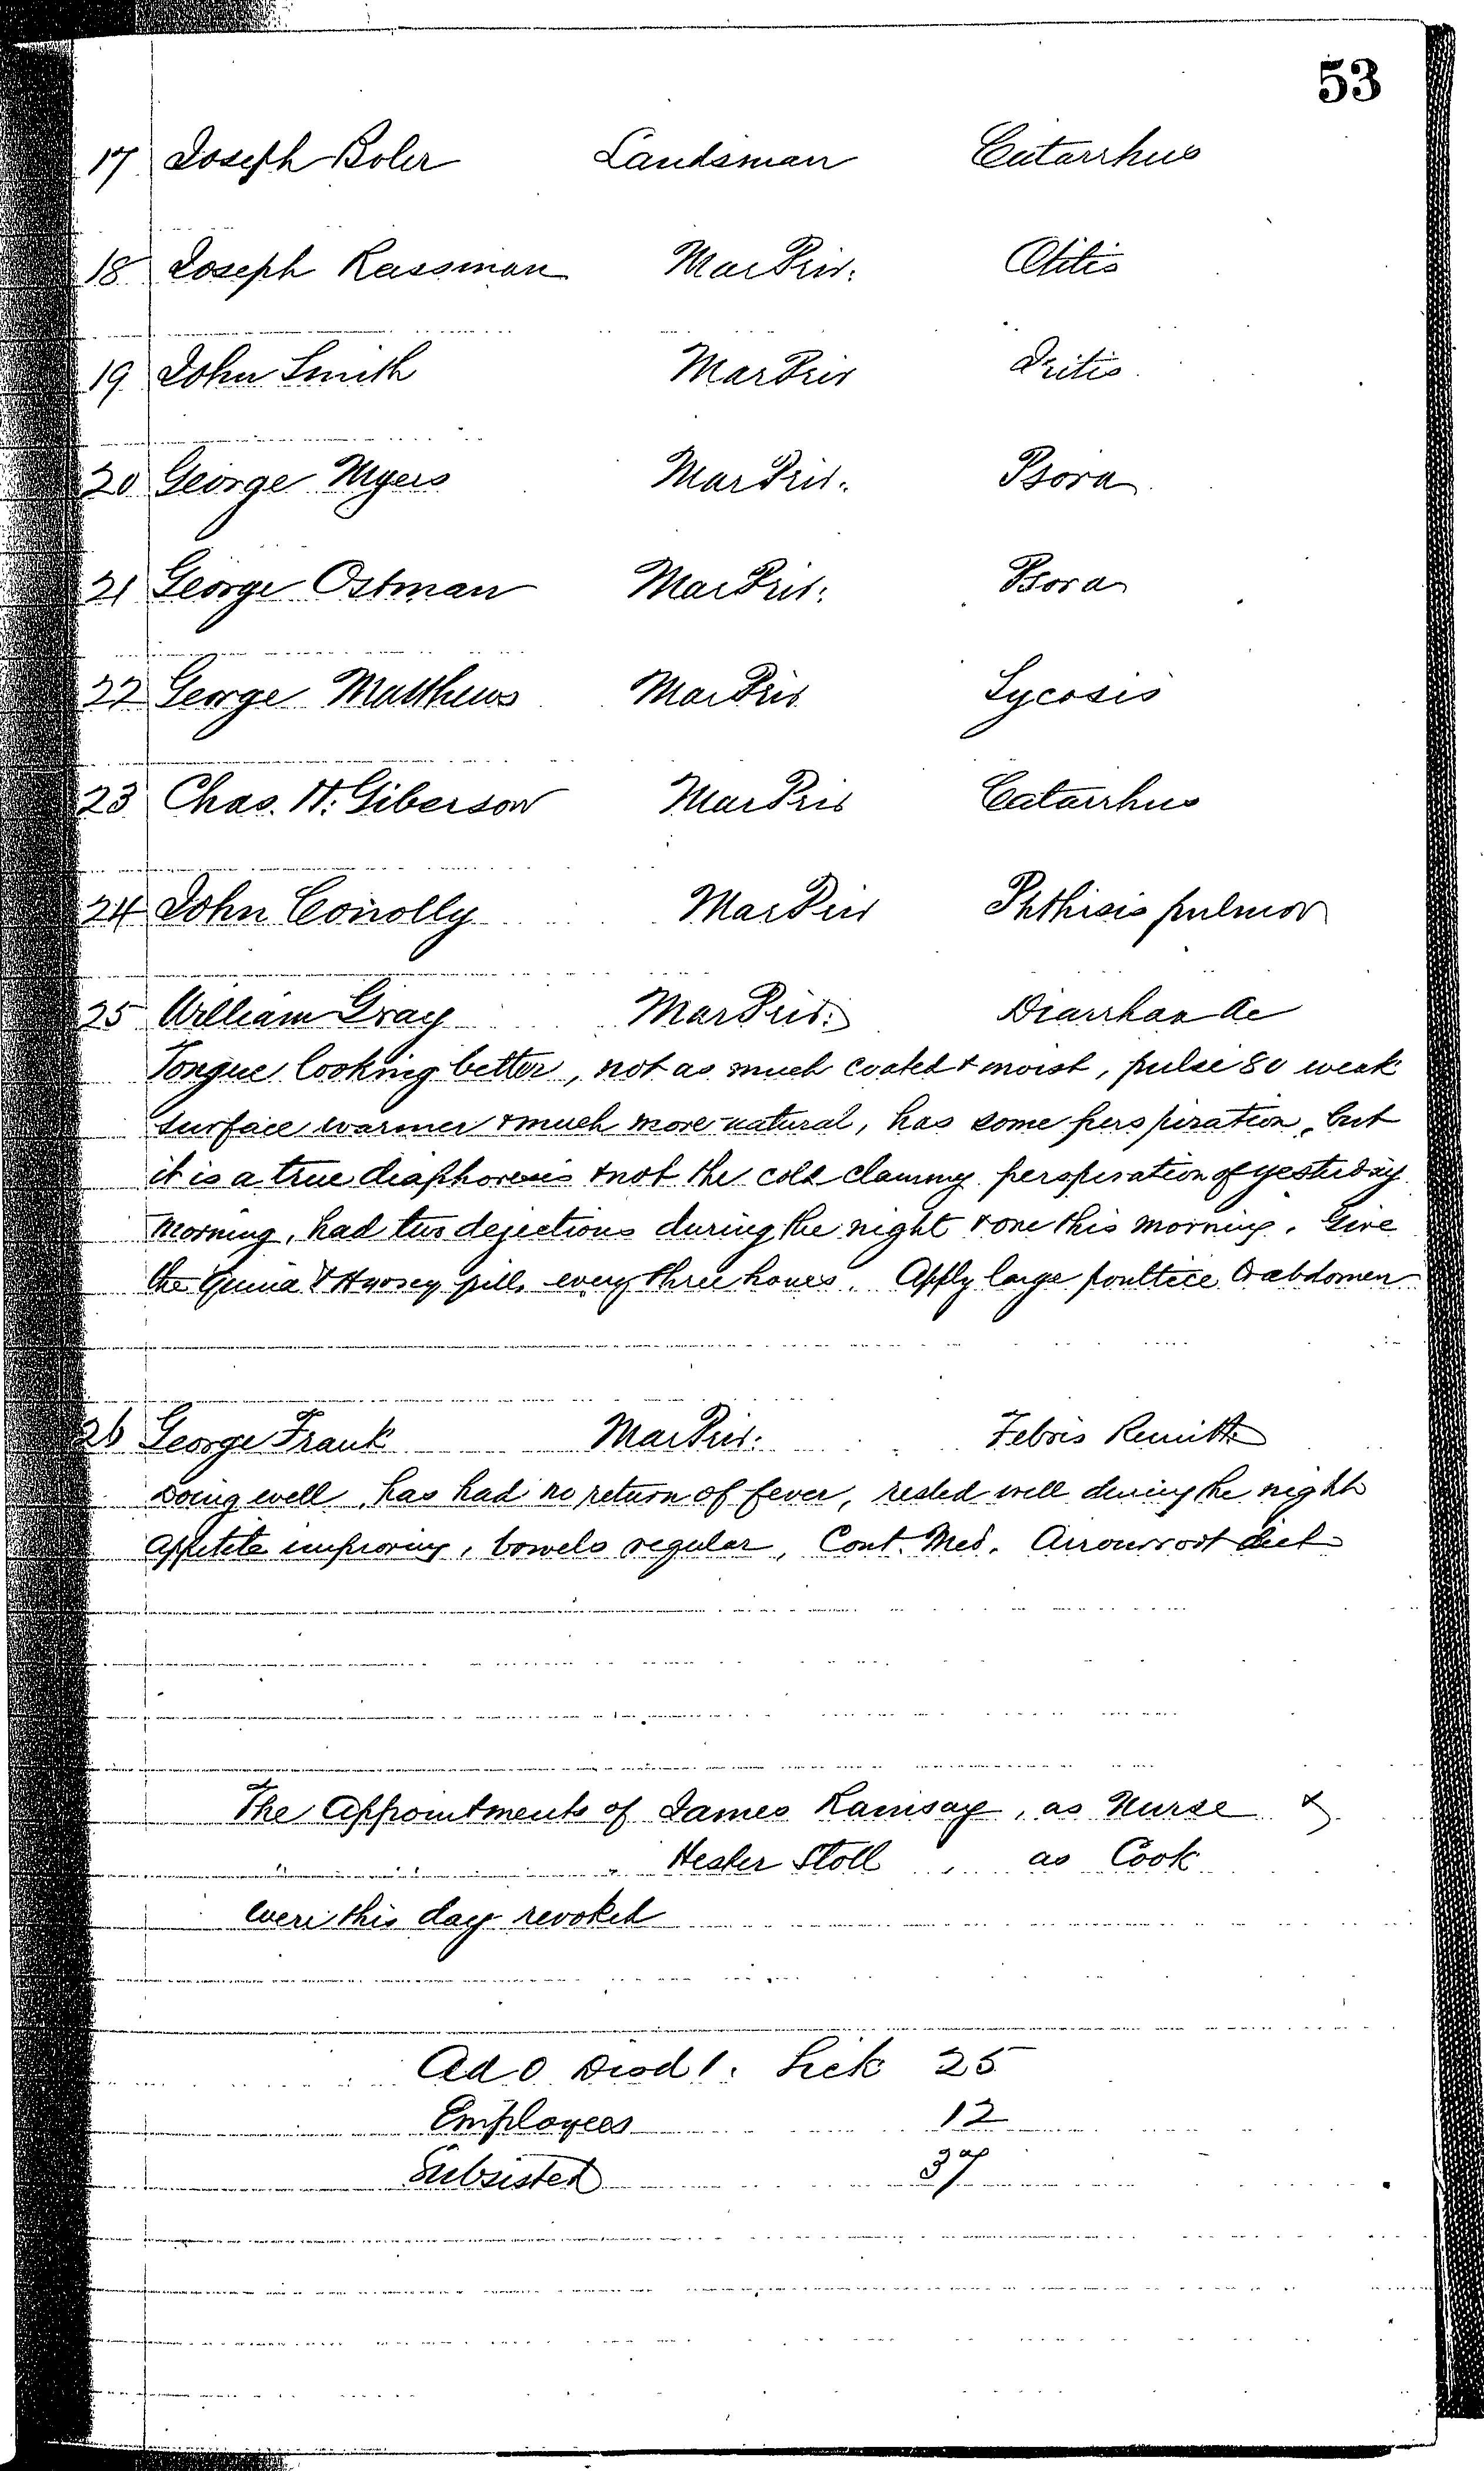 53
17 Joseph Boler Landsman Catarrhus
18 Joseph Rassman Mar Priv: Otitis
19 John Smith Mar Priv Iritis
20 George Myers Mar Priv. Psora
21 George Ostman Mar Priv: Psora
22 George Matthews Mar Priv Sycosis
23 Chas. H. Giberson Mar Priv Catarrhus
24 John Conolly Mar Priv Phthisis pulmon
25 William Gray Mar Priv: Diarrhœa Ac
Tongue looking better, not as much coated & moist, pulse 80 weak
surface warmer & much more natural, has some perspiration, but
it is a true diaphoresis & not the cold clammy perspiration of yesterday
morning, had two dejections during the night & one this morning. Give
the Quinia & Hyoscy pills every three hours. Apply large poultice to abdomen
26 George Frank Mar Priv: Febris Remitt
Doing well, has had no return of fever, rested well during the night
appetite improving, bowels regular, Cont. Med. Arrowroot diet
The Appointments of James Ramsay, as Nurse &
" " " Hester Stoll, as Cook
were this day revoked
Ad 0 Disd 1. Sick 25
Employees 12
Subsisted 37